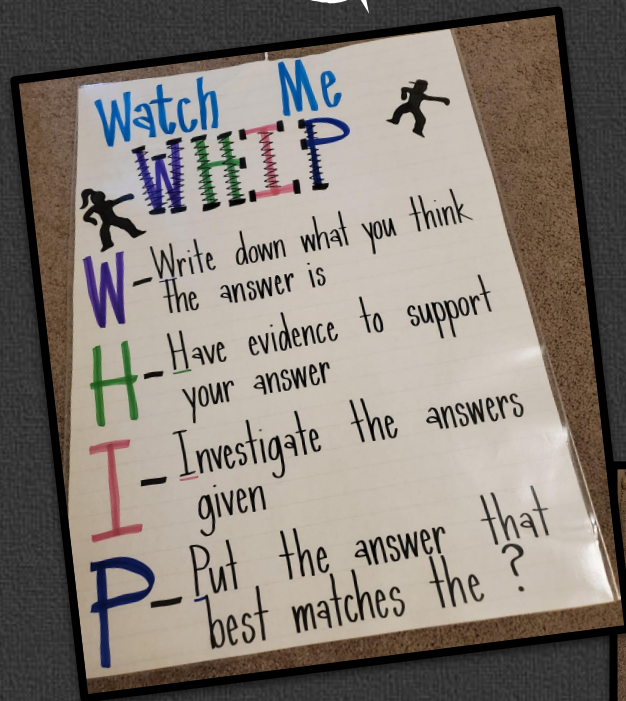 Watch Me
WHIP
W - Write down what you think
the answer is
H - Have evidence to support
your answer
I - Investigate the answers
given
P - Put the answer that
best matches the ?